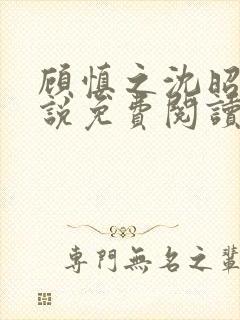 顾慎之沈昭
說免費閱讀
專門無名之輩